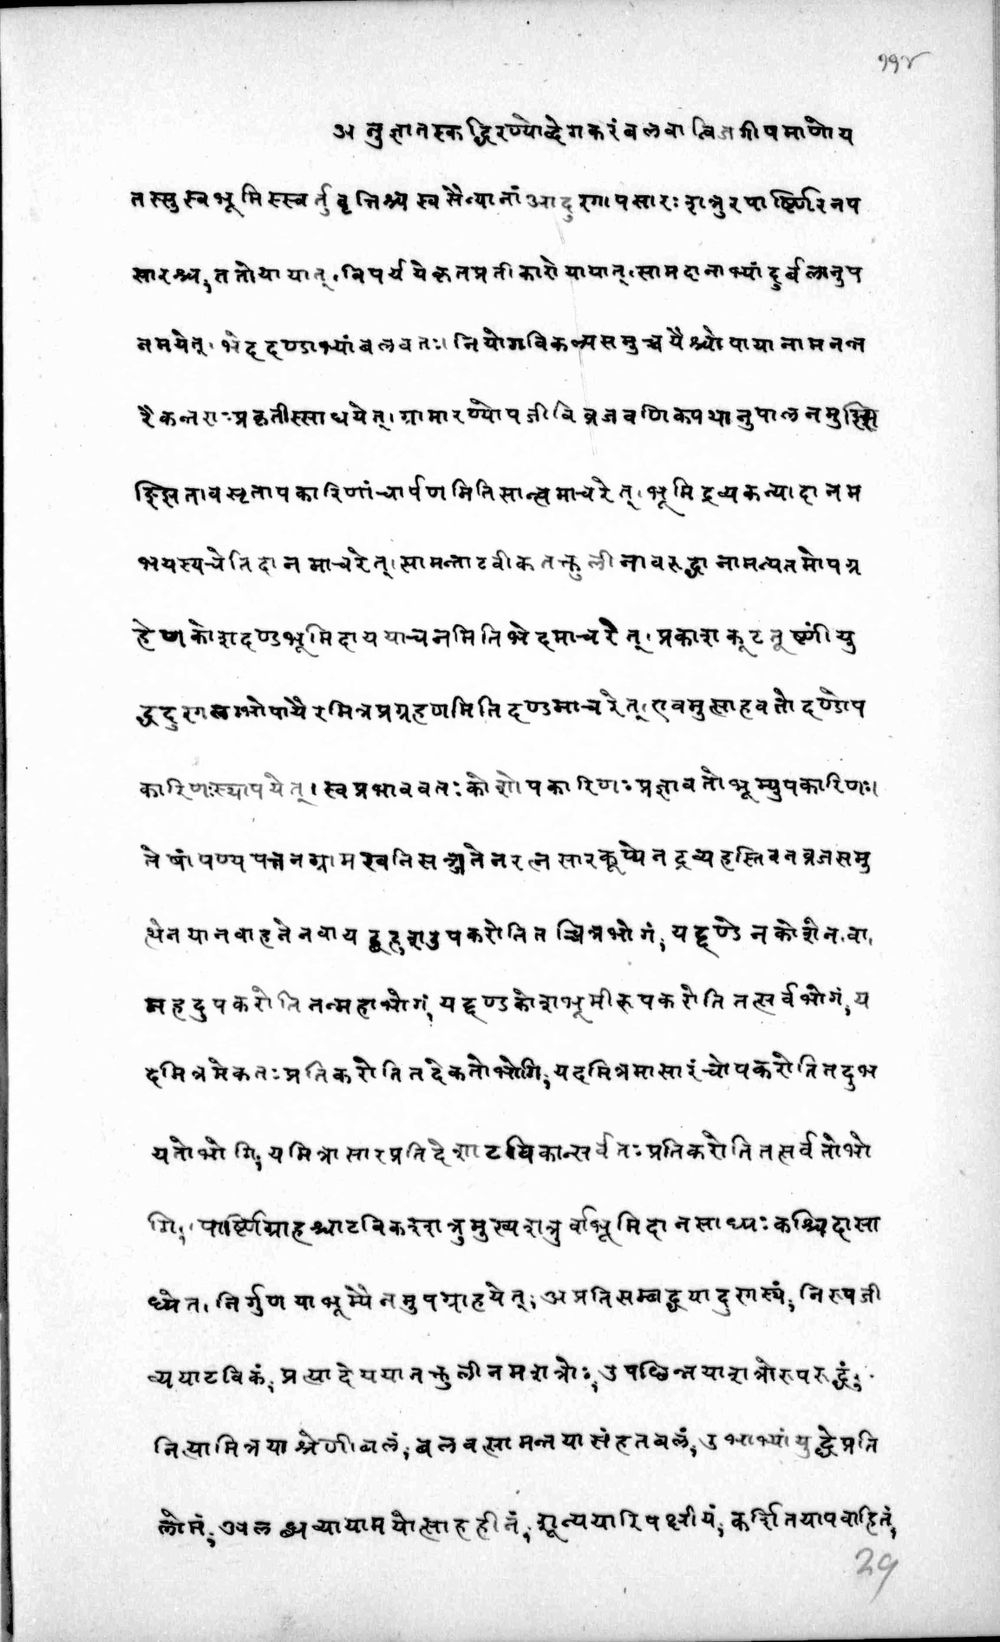 ११४
अनुज्ञातस्कद्धिरण्योद्वेगकरंबलवान्विजगीषमाणोय
तस्सुस्वभूमिस्स्वर्तुवृत्तिश्चस्वसैन्यानांआदुरगापसारःशत्रुरपार्ष्णिरनप
सारश्च,ततोयायात्,विपर्ययेकृतप्रतीकारोयायात्।सामदानाभ्यांदुर्बलानुप
नमयेत्।भेददण्डाभ्यांबलवतः।नियोगविकल्पसमुच्चयैश्चोपायानामनन्त
रैकन्तराःप्रकृतीस्साधयेत्।ग्रामारण्योपजीविव्रजवणिक्पथानुपालनमु
ज्झितावसृतापकारिणांचार्पणमितिसान्त्वमाचरेत्।भूमिद्रव्यकन्यादानम
भयस्यचेतिदानमाचरेत्।सामन्ताटवीकतत्कुलीनावरुद्धानामन्यतमोपग्र
हेणकोशदण्डभूमिदाययाचनमितिभेदमाचरेत्।प्रकाशकूटतूष्णींयु
द्धदुरगलम्भोपायैरमित्रप्रग्रहणमितिदण्डमाचरेत्।एवमुत्साहवतोदण्डोप
कारिणःस्थापयेत्।स्वप्रभाववतःकोशोपकारिणःप्रज्ञावतोभूम्युपकारिणः।
तेषांपण्यपत्तनग्रामखनिसञ्जातेनरत्नसारकूप्येनद्रव्यहस्तिवनव्रजसमु
त्थेनयानवाहनेनवायद्बहुशउपकरोतितच्चित्रभोगं,यद्दण्डेनकोशेन,वा,
महदुपकरोतितन्महाभोगं,यद्दण्डकोशभूमीरुपकरोतितत्सर्वभोगं,य
दमित्रमेकतःप्रतिकरोतितदेकतोभोगि,यदमित्रमासारंचोपकरोतितदुभ
यतोभोगि,यमित्रासारप्रतिदेशाटविकान्सर्वतःप्रतिकरोतितत्सर्वतोभो
गि,।पार्ष्णिग्राहश्चाटविकश्शत्रुमुख्यशत्रुर्वाभूमिदानसाध्यःकश्चिदासा
ध्येत,निर्गुणयाभूम्यैनमुपग्राहयेत्,अप्रतिसम्बद्धयादुरगस्थं,निरुपजी
व्ययाटविकं,प्रत्यादेययातत्कुलीनमशत्रोः,उपच्छिन्नयाशत्रोरुपरुद्धं,
नित्यामित्रयाश्रेणीबलं,बलवत्सामन्तयासंहतबलं,उभाभ्यांयुद्धेप्रति
लोमं,अलब्धव्यायामयोत्साहहीनं,शून्ययारिपक्षीयं,कर्शितयापवाहितं,
29